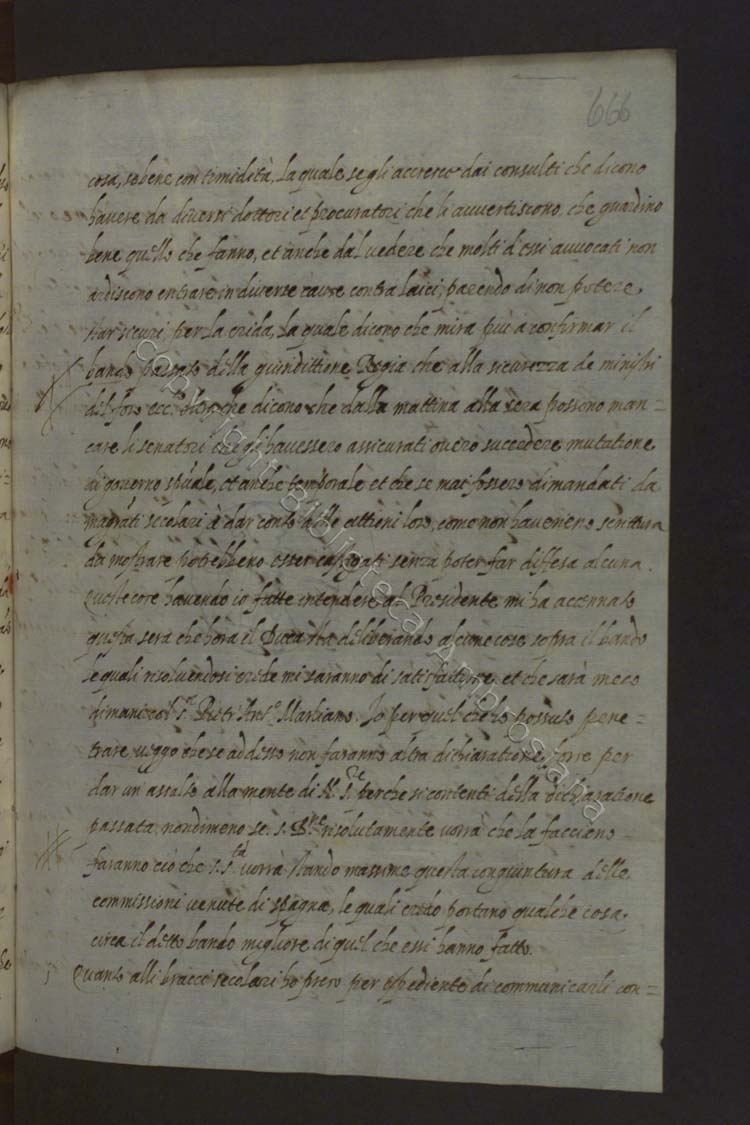 666
cosa, se bene con timidità, la quale se gli accresce dai consulti che dicono
havere da diversi dottori et procuratori che li avvertiscono che guardino
bene quello che fanno, et anche dal vedere che molti d'essi avvocati non
ardiscono entrare in diverse cause contra laici, parendo di non potere
star sicuri per la crida, la quale dicono che mira più a confirmar il
bando passato della giuridittione Regia che alla sicurezza de ministri
del foro ecc.co oltre che dicono che dalla mattina alla sera possono man=
care li senatori che gli havessero assicurati overo succedere mutatione
di governo sp̃uale, et anche temporale et che se mai fossero dimandati da
mag̃rati secolari à dar conto delle attioni loro, come non havenero scrittura
da mostrare potrebbeno esser castigati senza poter far diffesa alcuna.
Queste cose havendo io fatte intendere al Presidente mi ha accennato
questa sera che hora il Duca sta deliberando alcune cose sopra il bando
le quali risolvendosi crede mi saranno di satisfattione, et che sarà meco
dimani col S.r Pietr'Ant.o Marliano. Io per quel che ho possuto pene=
trare veggo che se addesso non faranno altra dichiaratione, forse per
dar un assalto alla mente di N. S.re perche si contenti della dichiaratione
passata, nondimeno se S. B.ne risolutamente vorrà che la facciano
faranno ciò che S. S.tà vorrà stando massime questa congiuntura delle
commissioni venute di Spagna, le quali credo portano qualche cosa
circa il detto bando migliore di quel che essi hanno fatto.
Quanto alli bracci secolari ho preso per espediente di communicarli con=
Copyright Biblioteca Ambrosiana